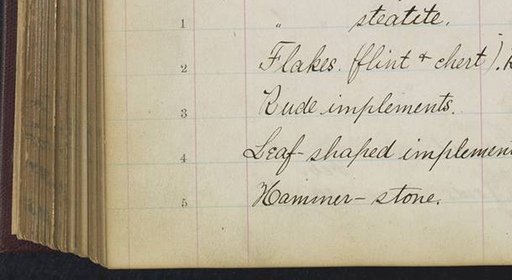 1 " steatite.
2 Flakes. (flint & chert).
3 Rude implements.
4 Leaf-shaped implemen
5 Hammer-stone.